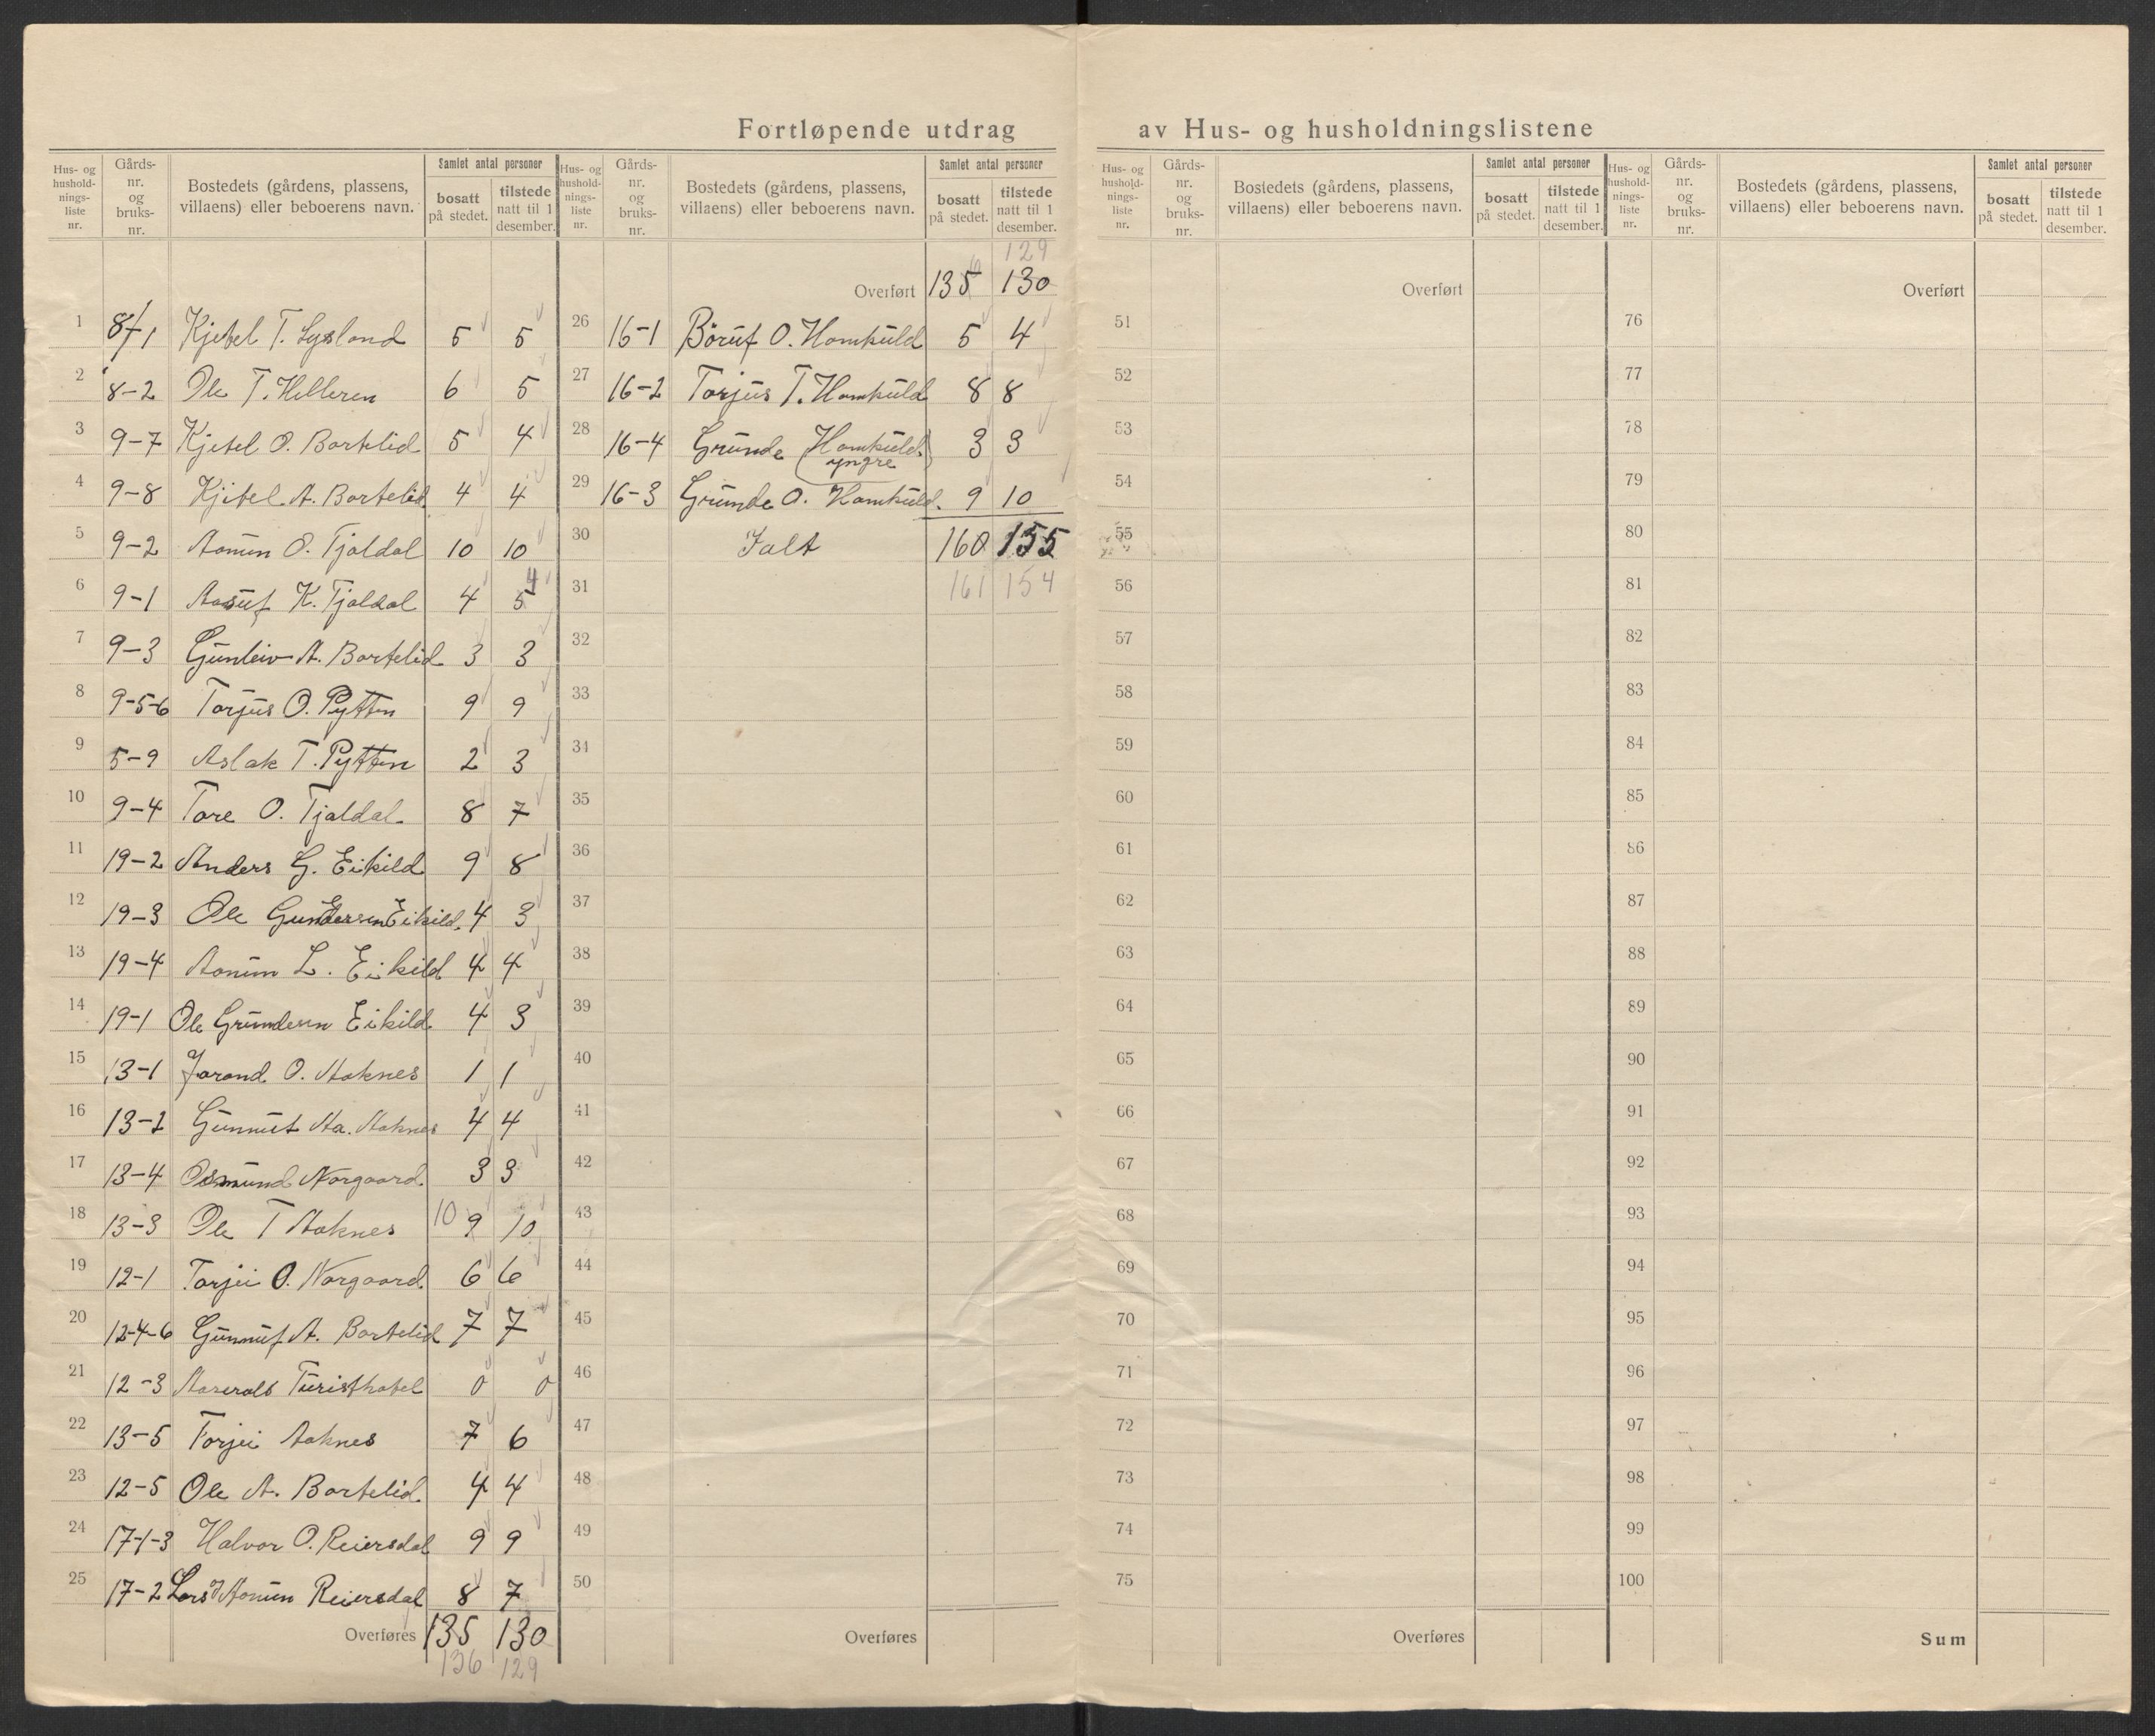 Fortløpende utdrag av Hus- og husholdningslistene
Hus- og hushold-nings-liste nr.
Gårds-nr. og bruks-nr.
Bostedets (gårdens, plassens, villaens) eller beboerens navn.
Samlet antal personer
bosatt på stedet.
tilstede natt til 1 desember.
1 8/1 Kjetel T. Lysland 5 5
2 8-2 Ole T. Helleren 6 5
3 9-7 Kjetel O. Bortelid 5 4
4 9-8 Kjetel A. Bortelid 4 4
5 9-2 Aanun O. Tjaldal 10 10
6 9-1 Aasuf K. Tjaldal 4 5 4
7 9-3 Gunleiv A. Bortelid 3 3
8 9-5-6 Torjus O. Pytten 9 9
9 5-9 Aslak T. Pytten 2 3
10 9-4 Tore O. Tjaldal 8 7
11 19-2 Anders G. Eikild 9 8
12 19-3 Ole Gundersen Eikild 4 3
13 19-4 Aanun L. Eikild 4 4
14 19-1 Ole Grundesen Eikild 4 3
15 13-1 Jorand O. Aaknes 1 1
16 13-2 Gunnut Aa. Aaknes 4 4
17 13-4 Osmund Norgaard 3 3
18 13-3 Ole T Aaknes 10 9 10
19 12-1 Torjei O. Norgaard 6 6
20 12-4-6 Gunnuf A. Bortelid 7 7
21 12-3 Aaseral Turisthotel 0 0
22 13-5 Torjei Aaknes 7 6
23 12-5 Ole A. Bortelid 4 4
24 17-1-3 Halvor O. Reiersdal 9 9
25 17-2 Lars Aanun Reiersdal 8 7
Overføres 135 130
136 129
Hus- og hushold-nings-liste nr.
Gårds-nr. og bruks-nr.
Bostedets (gårdens, plassens, villaens) eller beboerens navn.
Samlet antal personer
bosatt på stedet.
tilstede natt til 1 desember.
6 129
Overført 135 130
26 16-1 Böruf O. Homkuld 5 4
27 16-2 Torjus T. Homkuld 8 8
28 16-4 Grunde (Homkuld yngre) 3 3
29 16-3 Grunde O. Homkuld. 9 10
30 Ialt 160 155
31 161 154
32
33
34
35
36
37
38
39
40
41
42
43
44
45
46
47
48
49
50
Overføres
Hus- og hushold-nings-liste nr.
Gårds-nr. og bruks-nr.
Bostedets (gårdens, plassens, villaens) eller beboerens navn.
Samlet antal personer
bosatt på stedet.
tilstede natt til 1 desember.
Overført
51
52
53
54
55
56
57
58
59
60
61
62
63
64
65
66
67
68
69
70
71
72
73
74
75
Overføres
Hus- og hushold-nings-liste nr.
Gårds-nr. og bruks-nr.
Bostedets (gårdens, plassens, villaens) eller beboerens navn.
Samlet antal personer
bosatt på stedet.
tilstede natt til 1 desember.
Overført
76
77
78
79
80
81
82
83
84
85
86
87
88
89
90
91
92
93
94
95
96
97
98
99
100
Sum